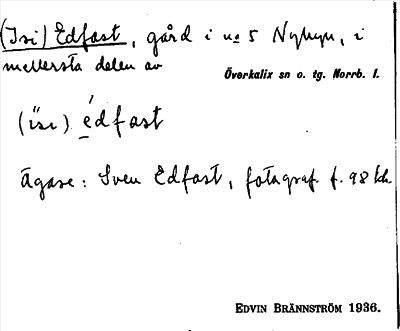 (Isi) Edfast, gård i no 5 Nybyn, i
mellersta delen av
Överkalix sn o. tg. Norrb. l.
(ìsi) édfast
Ägare: Sven Edfast, fotograf f. 98
EDVIN BRÄNNSTRÖM 1936.